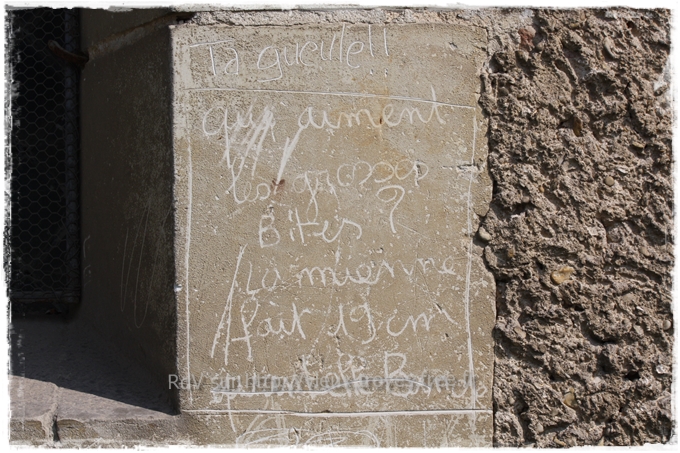 Ta gueule!!
qui aiment
les grosses
Bites ?
La mienne
fait 19 cm